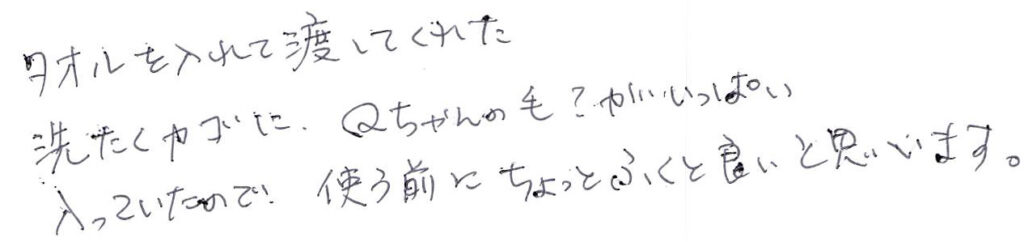 タオルを入れて渡してくれた
洗たくカゴに、Qちゃんの毛?がいっぱい
入っていたので、使う前にちょっとふくと良いと思います。